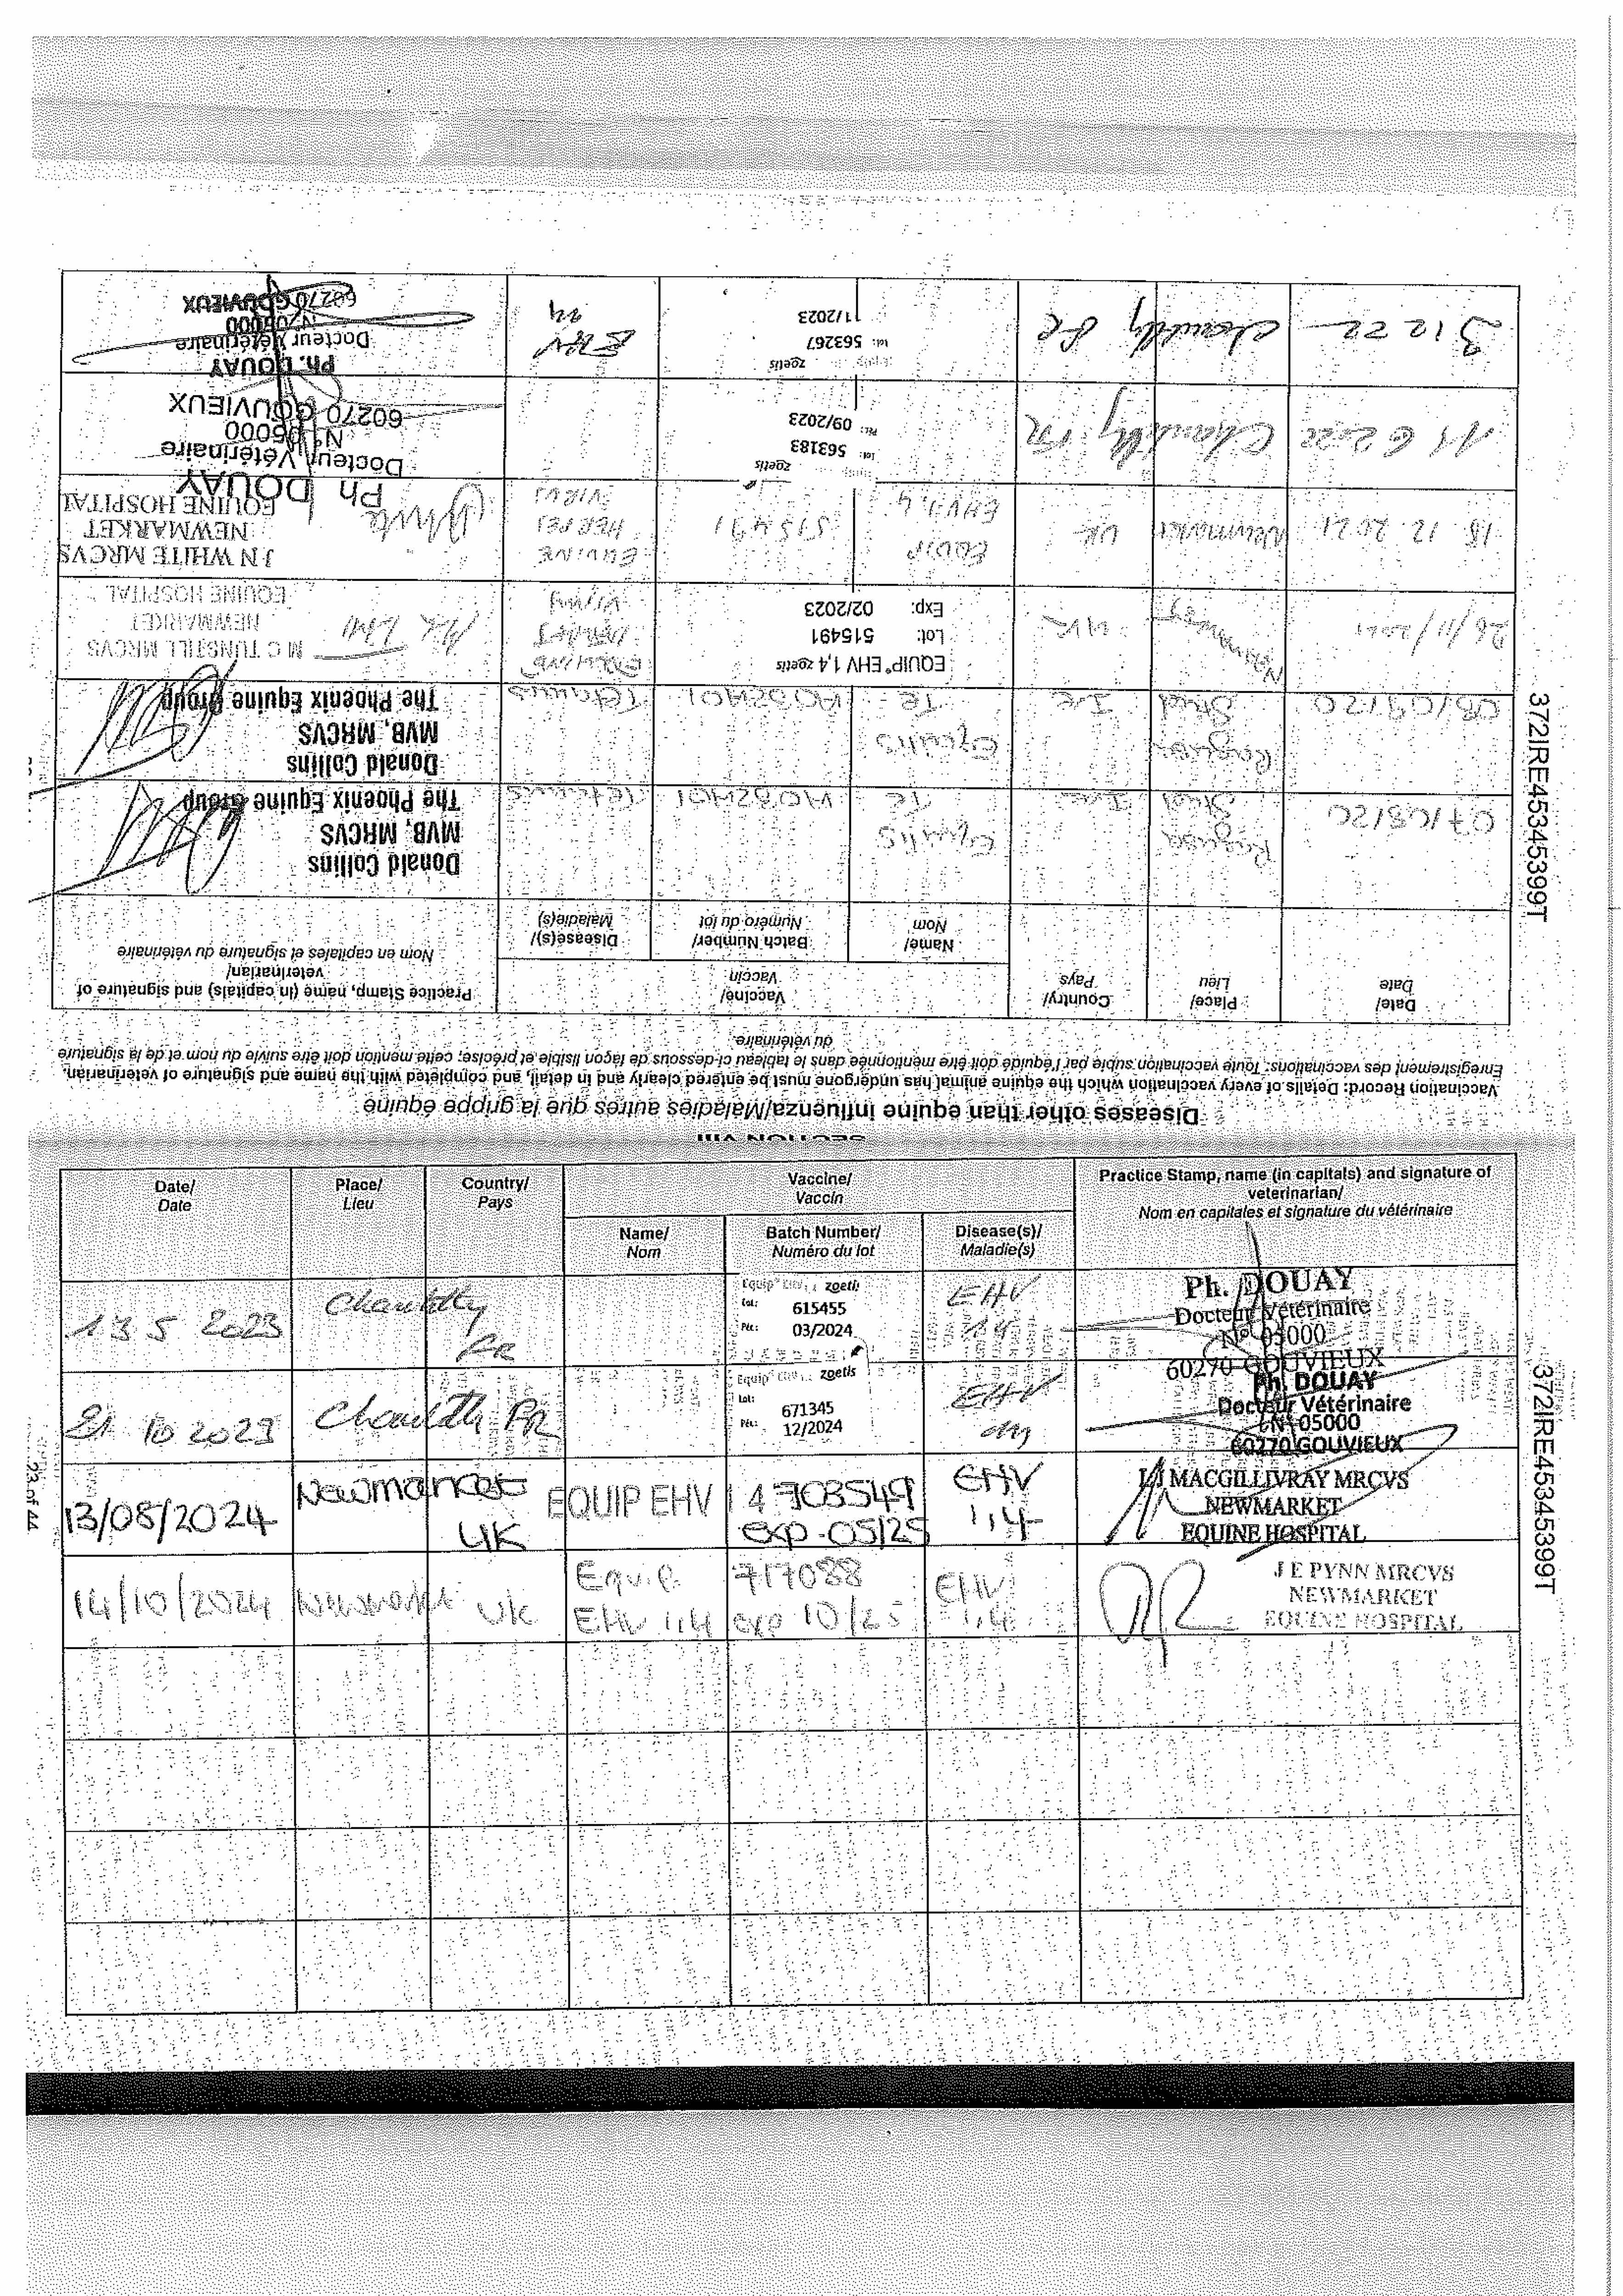 SECTION VIII
Diseases other than equine influenza/Maladies autres que la grippe équine
Vaccination Record: Details of every vaccination which the equine animal has undergone must be entered clearly and in detail, and completed with the name and signature of veterinarian.
Enregistrement des vaccinations: Toute vaccination subie par l'équidé doit être mentionnée dans le tableau ci-dessous de façon lisible et précise; cette mention doit être suivie du nom et de la signature
du vétérinaire.
Date/ Date
Place/ Lieu
Country/ Pays
Vaccine/ Vaccin
Name/ Nom
Batch Number/ Numéro du lot
Disease(s)/ Maladie(s)
Practice Stamp, name (in capitals) and signature of
veterinarian/
Nom en capitales et signature du vétérinaire
07/08/20 Stud Ire Equilis Te A083A01 Tetanus
Donald Collins
MVB, MRCVS
The Phoenix Equine Group
08/09/20 Stud Ire Equilis Te A083A01 Tetanus
Donald Collins
MVB, MRCVS
The Phoenix Equine Group
26/11/2021 Newmarket UK
EQUIP EHV 1,4 zoetis
Lot: 515491
Exp: 02/2023
M C TUNSTILL MRCVS
NEWMARKET
EQUINE HOSPITAL
18 12 2021 Newmarket UK
EQUIP
EHV 1,4
515491
EQUINE
HERPES
VIRUS
J N WHITE MRCVS
NEWMARKET
EQUINE HOSPITAL
11 6 2022 Chantilly FR
zoetis
Lot: 563183
Pér.: 09/2023
Ph DOUAY
Docteur Vétérinaire
N° 05000
60270 GOUVIEUX
3 12 22 Chantilly FR
zoetis
Lot: 563267
11/2023
EHV
Ph. DOUAY
Docteur Vétérinaire
N° 05000
60270 GOUVIEUX
372IRE45345399T
Date/ Date
Place/ Lieu
Country/ Pays
Vaccine/ Vaccin
Name/ Nom
Batch Number/ Numéro du lot
Disease(s)/ Maladie(s)
Practice Stamp, name (in capitals) and signature of
veterinarian/
Nom en capitales et signature du vétérinaire
13 5 2023 Chantilly FR
Equip EHV zoetis
Lot: 615455
Pér.: 03/2024
EHV
1 4
Ph. DOUAY
Docteur Vétérinaire
N° 05000
60270 GOUVIEUX
21 10 2023 Chantilly FR
Equip EHV zoetis
Lot: 671345
Pér.: 12/2024
EHV
Ph. DOUAY
Docteur Vétérinaire
N° 05000
60270 GOUVIEUX
13/08/2024 Newmarket UK
EQUIP EHV 1 4
703549
exp 05/25
EHV
1,4
MACGILLIVRAY MRCVS
NEWMARKET
EQUINE HOSPITAL
14/10/2024 Newmarket UK
Equip
EHV 1,4
717088
exp 10/25
EHV
1,4
J E PYNN MRCVS
NEWMARKET
EQUINE HOSPITAL
372IRE45345399T
23 of 44